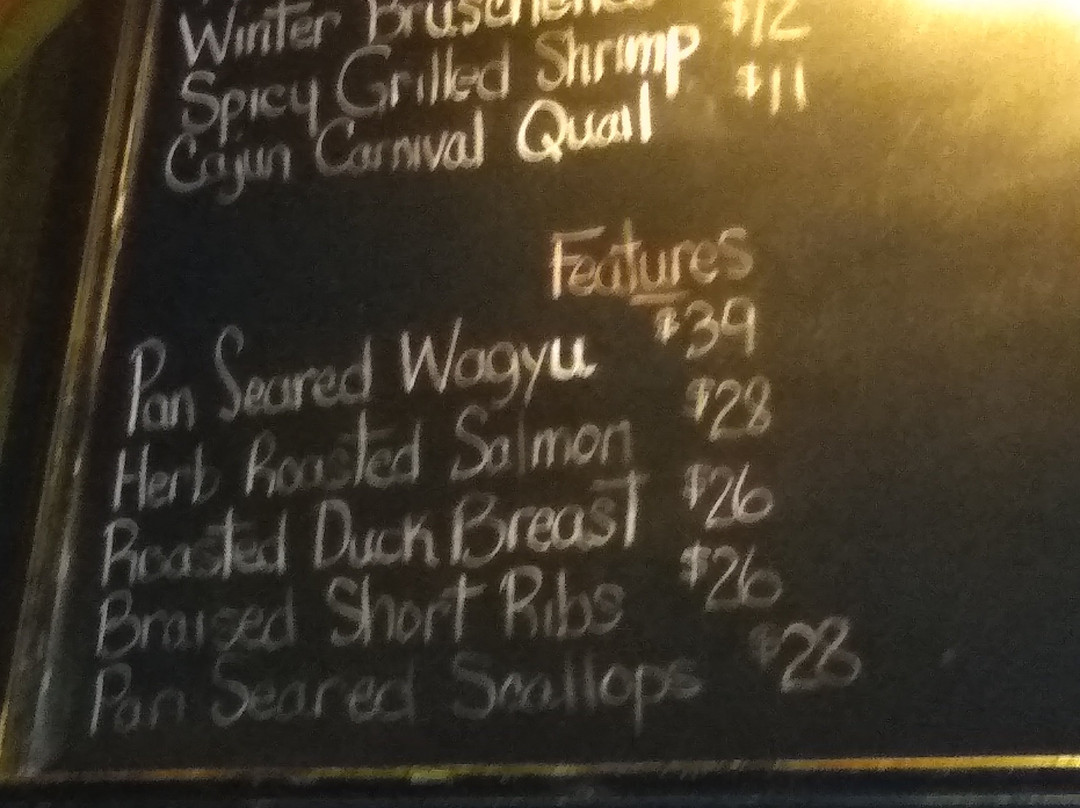 Winter
Spicy Grilled Shrimp $12
Cajun Carnival Quail $11
Features
Pan Seared Wagyu $39
Herb Roasted Salmon $28
Roasted Duck Breast $26
Braised Short Ribs $26
Pan Seared Scallops $28